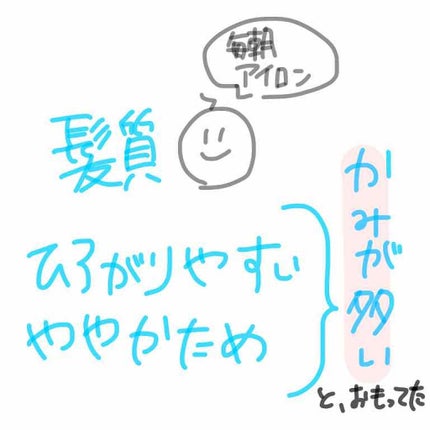 毎朝
アイロン
髪質
ひろがりやすい
ややかため
かみが多い
と、おもってた